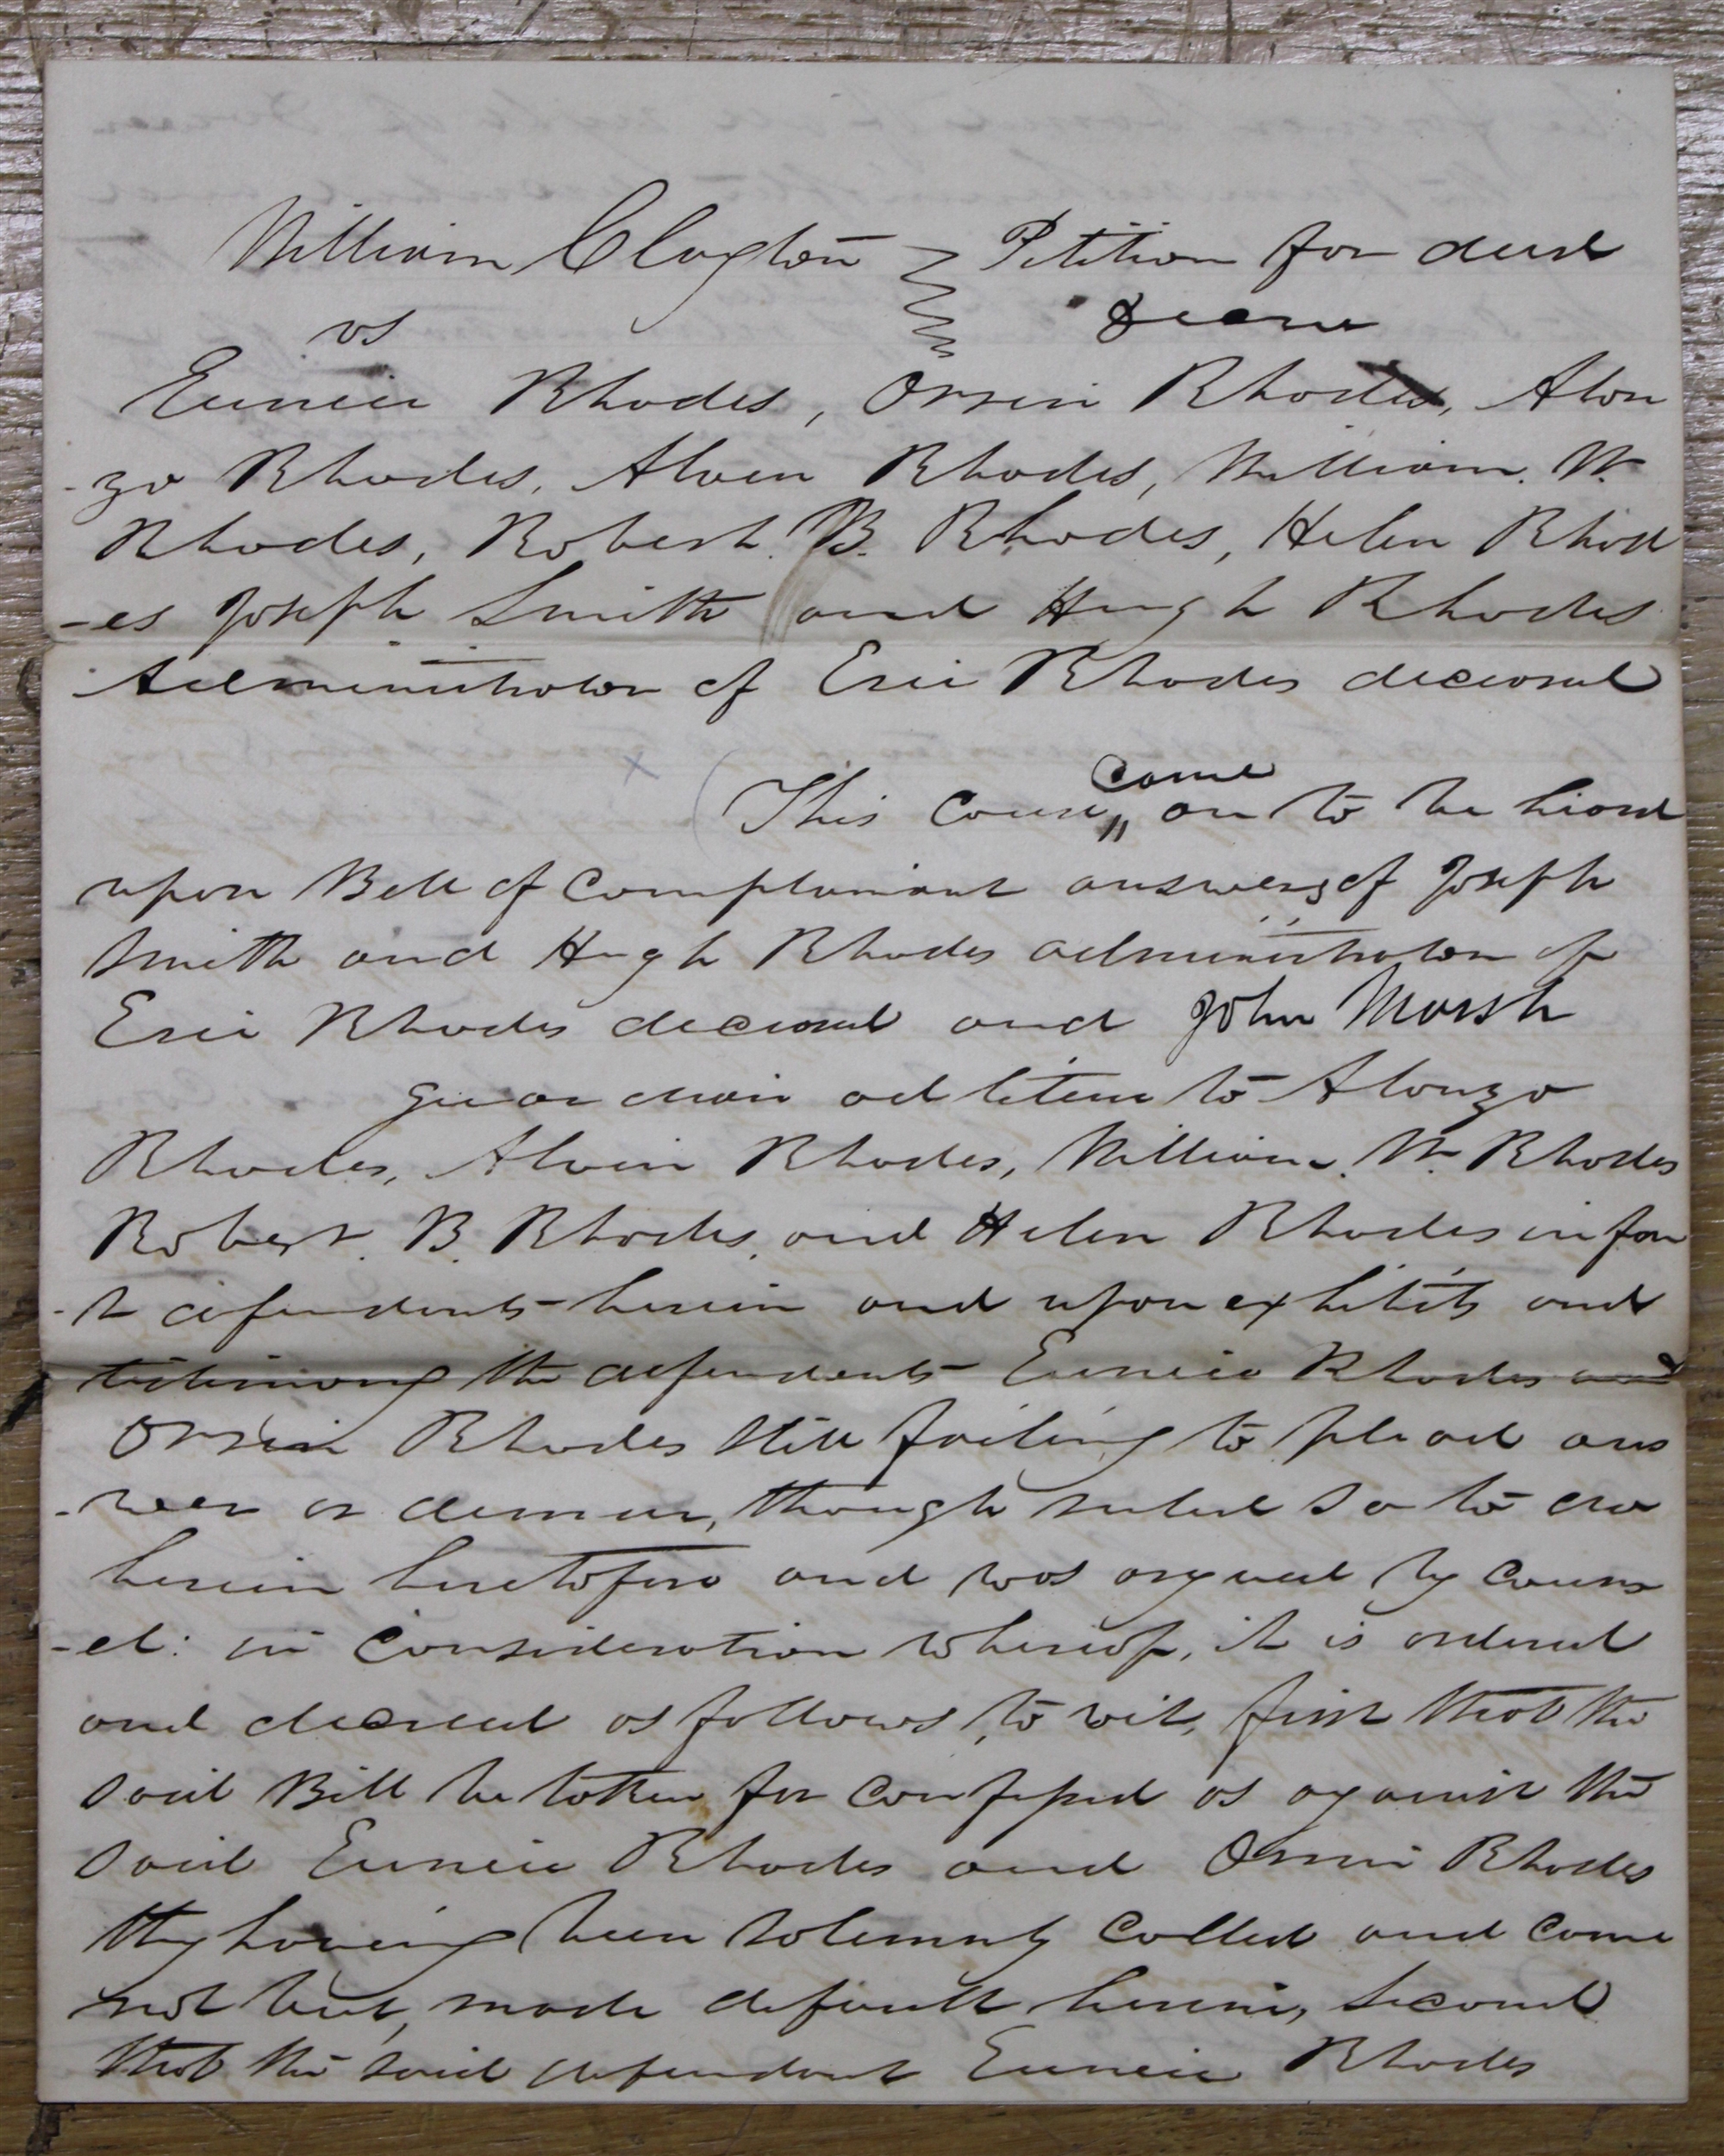 William Clayton Petition for deed
vs Decree
Eunice Rhodes, Orrin Rhodes, Alon
-zo Rhodes, Alvin Rhodes, William. W.
Rhodes, Robert. B. Rhodes, Helen Rhod
-es Joseph Smith and Hugh Rhodes
Administrator of Eric Rhodes deceased
This Cause came on to be heard
upon Bill of Complainant answers of Joseph
Smith and Hugh Rhodes administrator of
Eric Rhodes deceased and John Marsh
guardian ad litem to Alonzo
Rhodes, Alvin Rhodes, William. W. Rhodes
Robert. B. Rhodes, and Helen Rhodes infan
-t defendants herein and upon exhibits and
testimony the defendants Eunice Rhodes and
Orrin Rhodes still failing to plead ans
-wer or demur, though ruled so to do
herein heretofore and was argued by Couns
-el: in Consideration whereof, it is ordered
and decreed as follows, to wit, first that the
said Bill be taken for Confessed as against the
said Eunice Rhodes and Orrin Rhodes
they having been solemnly Called and Come
not but, made default herein, Second
that the said defendant Eunice Rhodes